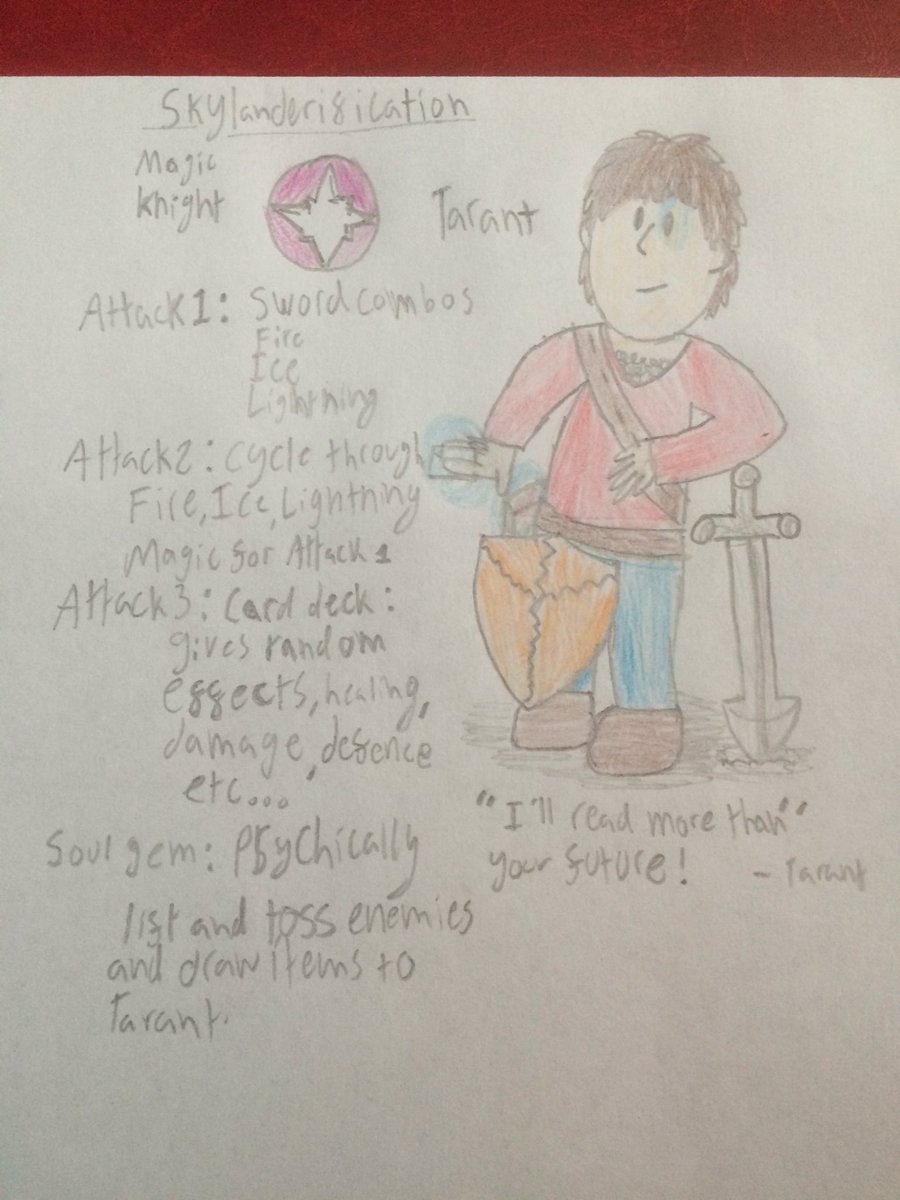 Skylanderisication
Magic
Knight
Tarant
Attack1: Sword combos
Fire
Ice
Lightning
Attack2: Cycle through
Fire, Ice, Lightning
Magic for Attack 1
Attack3: Card deck:
gives random
effects, healing,
damage, defence
etc...
Soul gem: Psychically
lift and toss enemies
and draw items to
Tarant.
"I'll read more than"
your future!
- Tarant